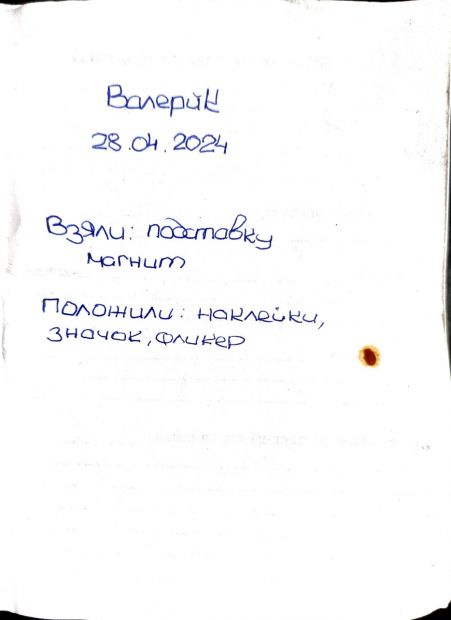 ВалерийК
28.04.2024
Взяли: подставку
магнит
Положили: наклейки,
значок, фликер